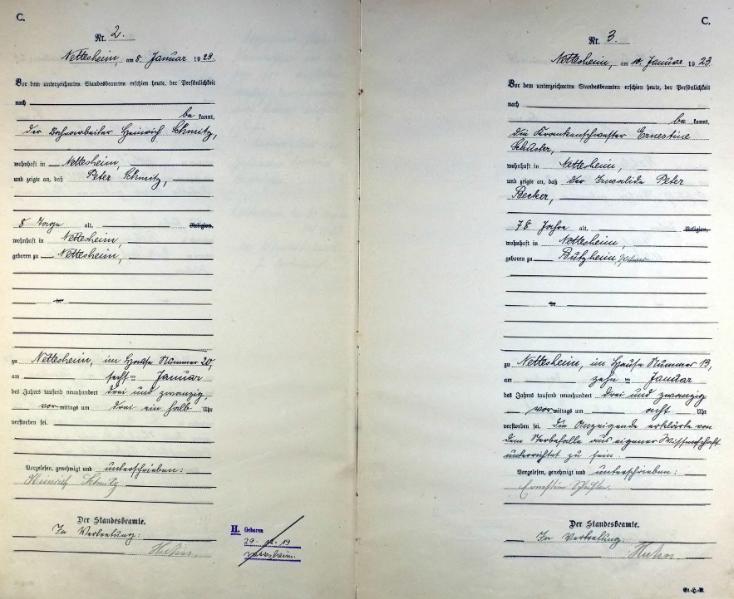 C.
Nr. 2.
Nettesheim, am 8. Januar 1923.
Vor dem unterzeichneten Standesbeamten erschien heute, der Persönlichkeit
nach
be kannt,
der Heinrich Schmitz,
wohnhaft in Nettesheim,
und zeigte an, daß Peter Schmitz,
8 Tage alt, Religion,
wohnhaft in Nettesheim,
geboren zu Nettesheim,
zu Nettesheim, im Hause Nummer 20,
am Januar
des Jahres tausend neunhundert drei und zwanzig,
vormittags um drei ein halb Uhr
verstorben sei.
Vorgelesen, genehmigt und unterschrieben:
Heinrich Schmitz
Der Standesbeamte.
In Vertretung:
II. Geboren
C.
Nr. 3.
Nettesheim, am Januar 1923.
Vor dem unterzeichneten Standesbeamten erschien heute, der Persönlichkeit
nach
be kannt,
die Krankenschwester Ernestine
wohnhaft in Nettesheim,
und zeigte an, daß der Invalide Peter
Becker,
78 Jahre alt, Religion,
wohnhaft in Nettesheim,
geboren zu Butzheim,
zu Nettesheim, im Hause Nummer 19,
am zehn Januar
des Jahres tausend neunhundert drei und zwanzig
vormittags um acht Uhr
verstorben sei. Die Anzeigende erklärte von
dem Sterbefalle aus eigener Wissenschaft
unterrichtet zu sein.
Vorgelesen, genehmigt und unterschrieben:
Der Standesbeamte.
In Vertretung: